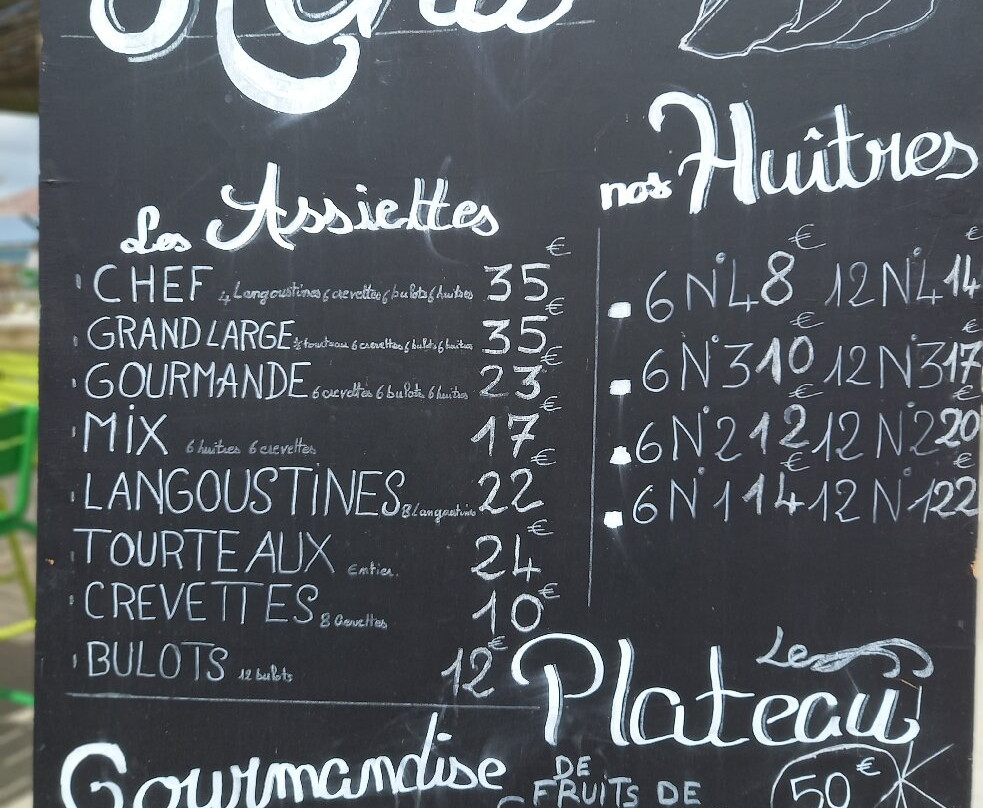 Menu
Les Assiettes
CHEF 4 Langoustines 6 crevettes 6 bulots 6 huitres 35€
GRAND LARGE ½ tourteau 6 crevettes 6 bulots 6 huitres 35€
GOURMANDE 6 crevettes 6 bulots 6 huitres 23€
MIX 6 huitres 6 crevettes 17€
LANGOUSTINES 8 Langoustines 22€
TOURTEAUX Entier. 24€
CREVETTES 8 Crevettes 10€
BULOTS 12 bulots 12€
nos Huîtres
6 N°4 8€ 12 N°4 14€
6 N°3 10€ 12 N°3 17€
6 N°2 12€ 12 N°2 20€
6 N°1 14€ 12 N°1 22€
Le
Plateau
DE
FRUITS DE
50€
Gourmandise